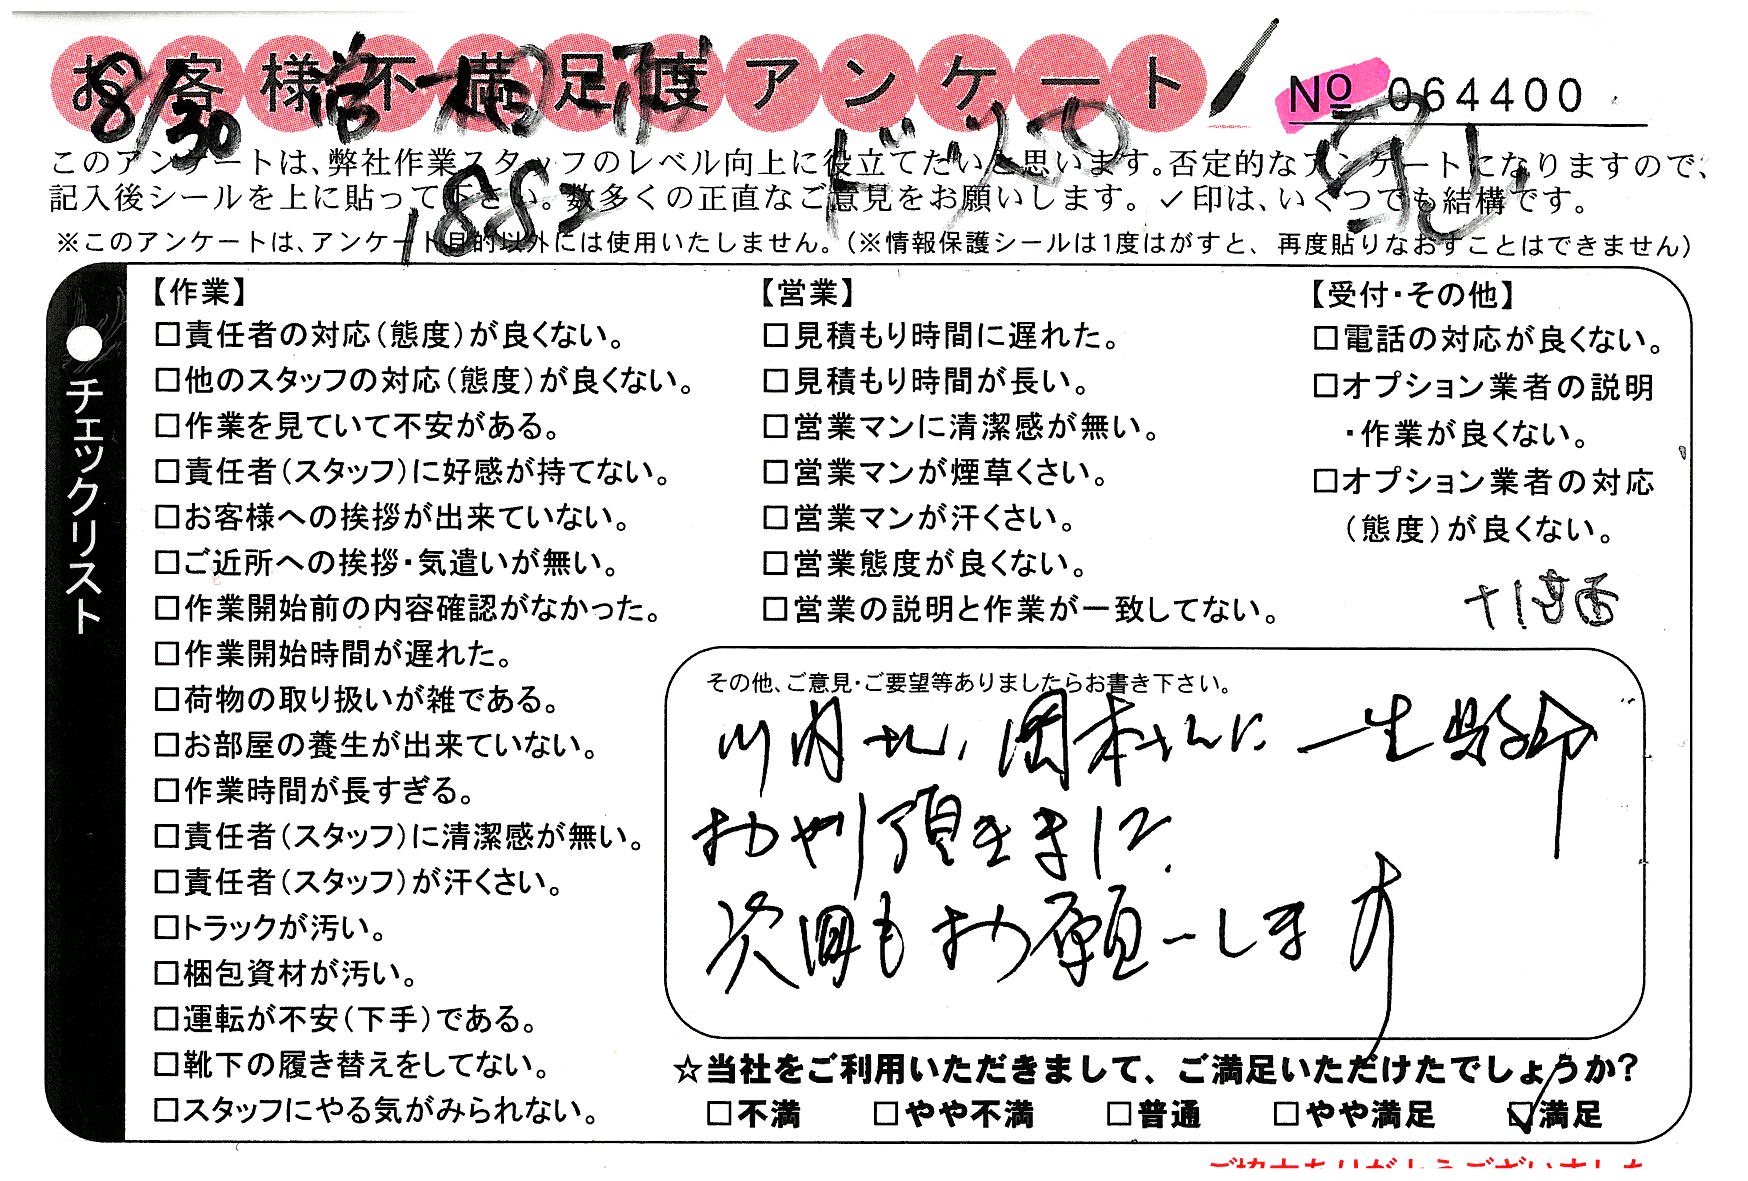 お客様不満足度アンケート
No 064400
8/30
1883
このアンケートは、弊社作業スタッフのレベル向上に役立てたいと思います。否定的なアンケートになりますので、
記入後シールを上に貼って下さい。数多くの正直なご意見をお願いします。✓印は、いくつでも結構です。
※このアンケートは、アンケート目的以外には使用いたしません。(※情報保護シールは1度はがすと、再度貼りなおすことはできません)
チェックリスト
【作業】
□責任者の対応(態度)が良くない。
□他のスタッフの対応(態度)が良くない。
□作業を見ていて不安がある。
□責任者(スタッフ)に好感が持てない。
□お客様への挨拶が出来ていない。
□ご近所への挨拶・気遣いが無い。
□作業開始前の内容確認がなかった。
□作業開始時間が遅れた。
□荷物の取り扱いが雑である。
□お部屋の養生が出来ていない。
□作業時間が長すぎる。
□責任者(スタッフ)に清潔感が無い。
□責任者(スタッフ)が汗くさい。
□トラックが汚い。
□梱包資材が汚い。
□運転が不安(下手)である。
□靴下の履き替えをしてない。
□スタッフにやる気がみられない。
【営業】
□見積もり時間に遅れた。
□見積もり時間が長い。
□営業マンに清潔感が無い。
□営業マンが煙草くさい。
□営業マンが汗くさい。
□営業態度が良くない。
□営業の説明と作業が一致してない。
【受付・その他】
□電話の対応が良くない。
□オプション業者の説明
・作業が良くない。
□オプション業者の対応
(態度)が良くない。
その他、ご意見・ご要望等ありましたらお書き下さい。
川内さん、岡本さんに一生懸命
おやり頂きました。
次回もお願いします
☆当社をご利用いただきまして、ご満足いただけたでしょうか?
□不満 □やや不満 □普通 □やや満足 ☑満足
ご協力ありがとうございました